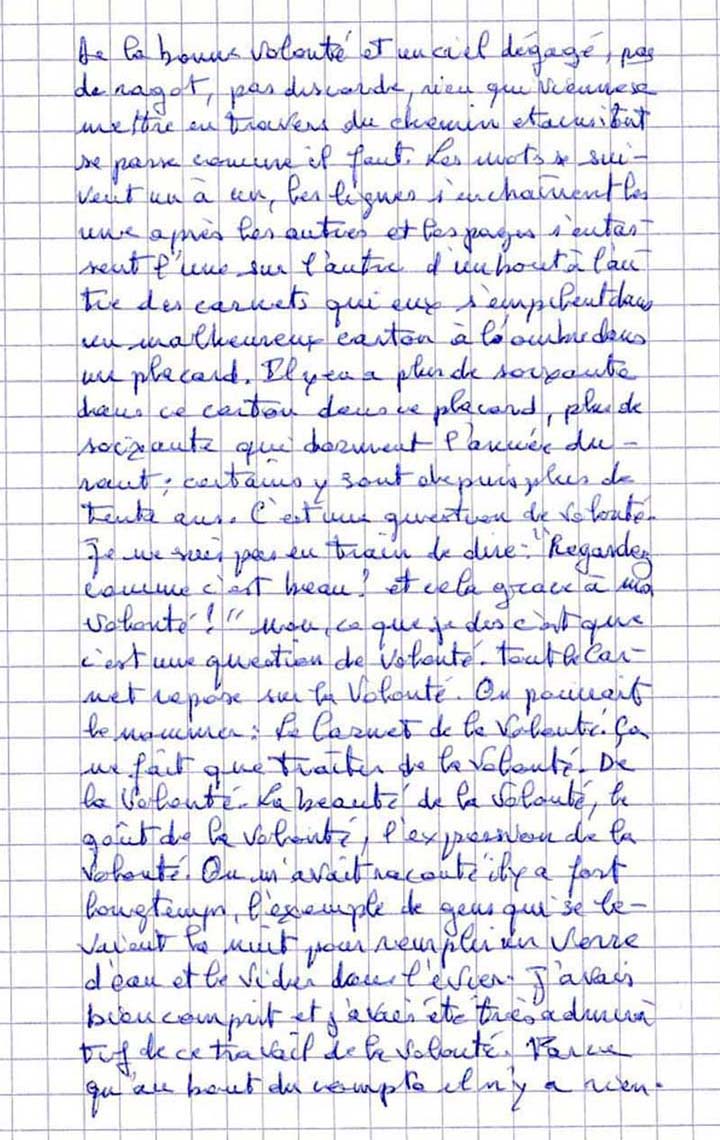 De la bonne volonté et un ciel dégagé, pas
de ragot, pas discorde, rien qui vienne se
mettre en travers du chemin et aussitôt
se passe comme il faut. Les mots se sui-
vent un à un, les lignes s'enchaînent les
une après les autres et les pages s'entas-
sent l'une sur l'autre d'un bout à l'au
tre des carnets qui eux s'empilent dans
un malheureux carton à l'ombre dans
un placard. Il y en a plus de soixante
dans ce carton dans ce placard, plus de
soixante qui dorment l'année du-
rant ; certains y sont depuis plus de
trente ans. C'est une question de volonté.
Je ne suis pas en train de dire : "Regardez
comme c'est beau ! et cela grace à ma
volonté !" Non, ce que je dis c'est que
c'est une question de volonté. Tout le Car-
net repose sur la Volonté. On pourrait
le nommer : Le Carnet de la Volonté. Ça
ne fait que traiter de la volonté. De
la Volonté. La beauté de la volonté, le
goût de la volonté, l'expression de la
volonté. On m'avait raconté il y a fort
longtemps, l'exemple de gens qui se le-
vaient la nuit pour remplir un verre
d'eau et le vider dans l'évier. J'avais
bien comprit et j'avais été très admira
tif de ce travail de la volonté. Parce
qu'au bout du compte il n'y a rien.